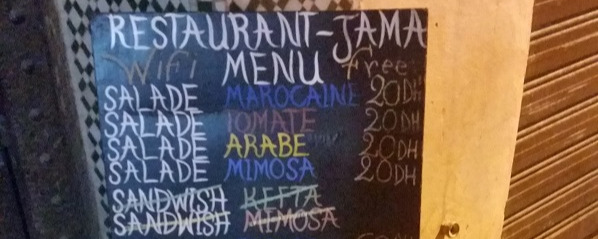 RESTAURANT-JAMA
Wifi MENU Free
SALADE MAROCAINE 20DH
SALADE TOMATE 20DH
SALADE ARABE 20DH
SALADE MIMOSA 20DH
SANDWISH KEFTA
SANDWISH MIMOSA